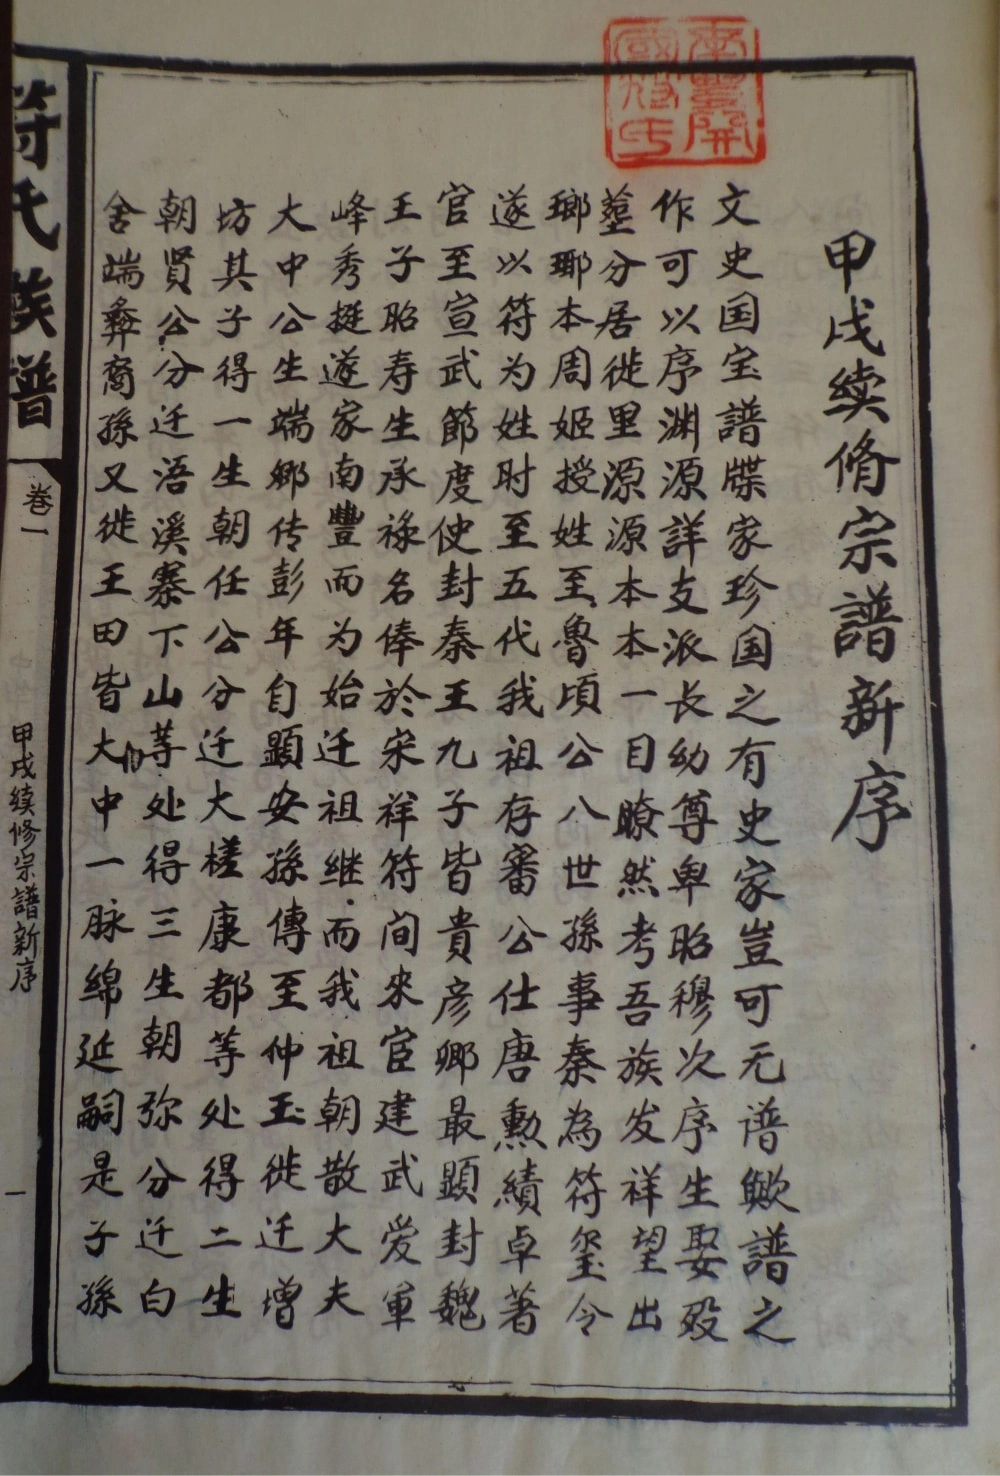 甲戌续脩宗譜新序
文史国宝譜牒家珍国之有史家豈可无谱歟譜之
作可以序渊源詳支派长幼尊卑昭穆次序生娶殁
塟分居徙里源源本本一目瞭然考吾族发祥望出
瑯琊本周姬授姓至魯頃公八世孫事秦為符璽令
遂以符为姓时至五代我祖存審公仕唐勲績卓著
官至宣武節度使封秦王九子皆貴彦卿最顕封魏
王子昭寿生承祿名俸於宋祥符间來宦建武爱軍
峰秀挺遂家南豐而为始迁祖继而我祖朝散大夫
大中公生端鄉传彭年自顕安孫傳至仲玉徙迁增
坊其子得一生朝任公分迁大槎康都等处得二生
朝賢公分迁浯溪寨下山等处得三生朝弥分迁白
舍端彝裔孫又徙王田皆大中一脉绵延嗣是子孫
符氏族譜
卷一
甲戌續修宗譜新序
一
南豐開國符氏